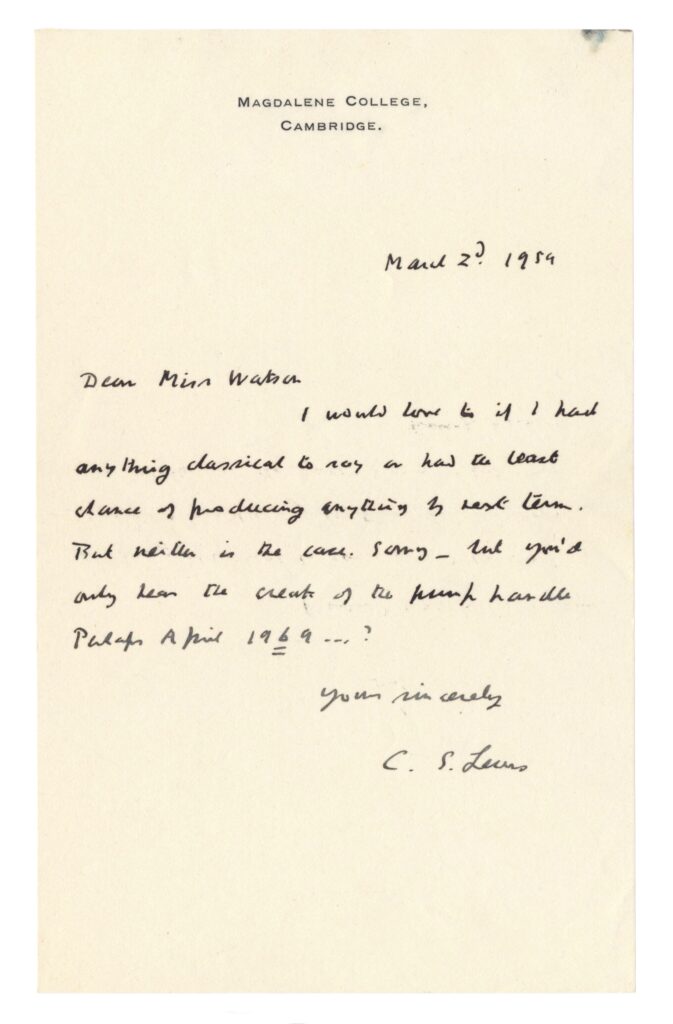 MAGDALENE COLLEGE,
CAMBRIDGE.
March 2d. 1959
Dear Miss Watson
I would love to if I had
anything classical to say or had the least
chance of producing anything by next term.
But neither is the case. Sorry – but you'd
only hear the creak of the pump handle
Perhaps April 1969 ...?
yours sincerely
C. S. Lewis